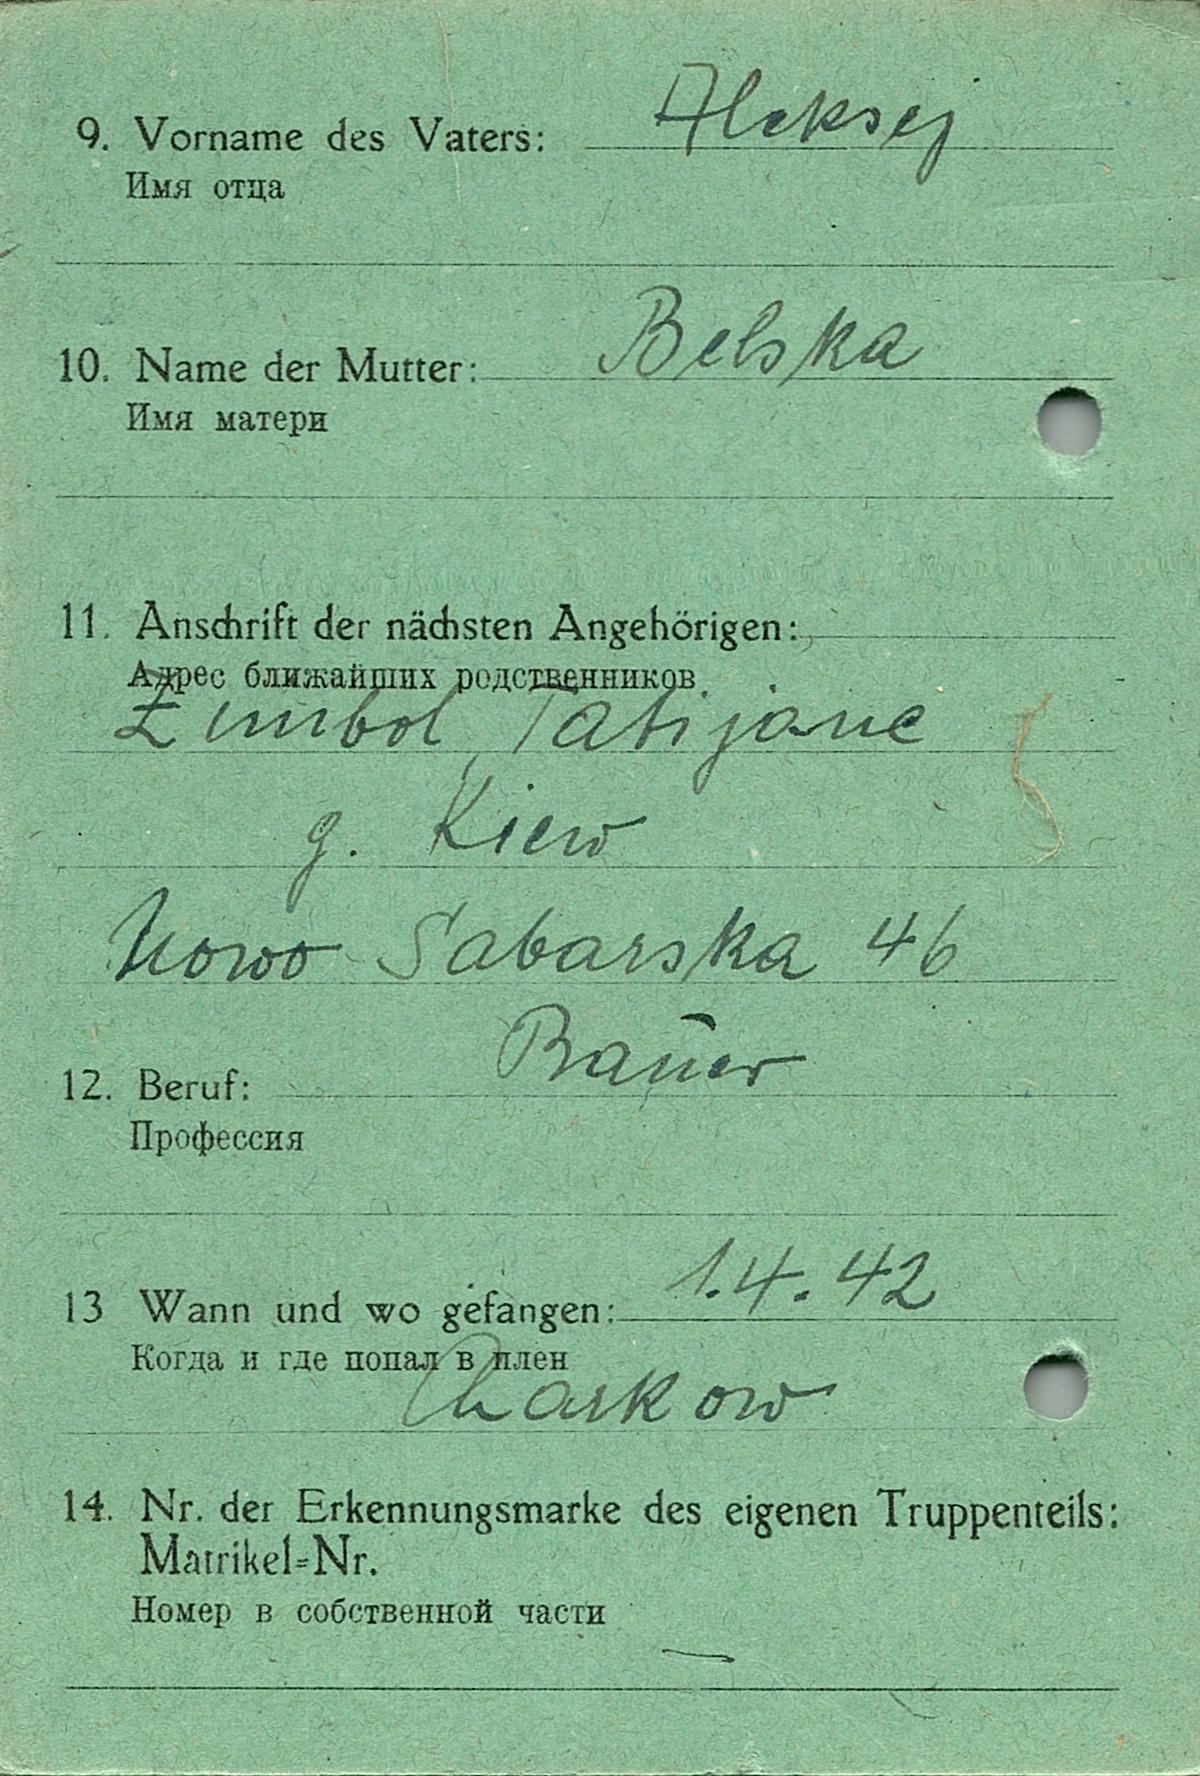 9. Vorname des Vaters: Aleksej
Имя отца
10. Name der Mutter: Belska
Имя матери
11. Anschrift der nächsten Angehörigen:
Адрес ближайших родственников
Zimbol, Tatijane
g. Kiew
Nowo Sabarska 46
12. Beruf: Bauer
Профессия
13 Wann und wo gefangen: 1.4.42
Когда и где попал в плен
Charkow
14. Nr. der Erkennungsmarke des eigenen Truppenteils:
Matrikel=Nr.
Номер в собственной части
—